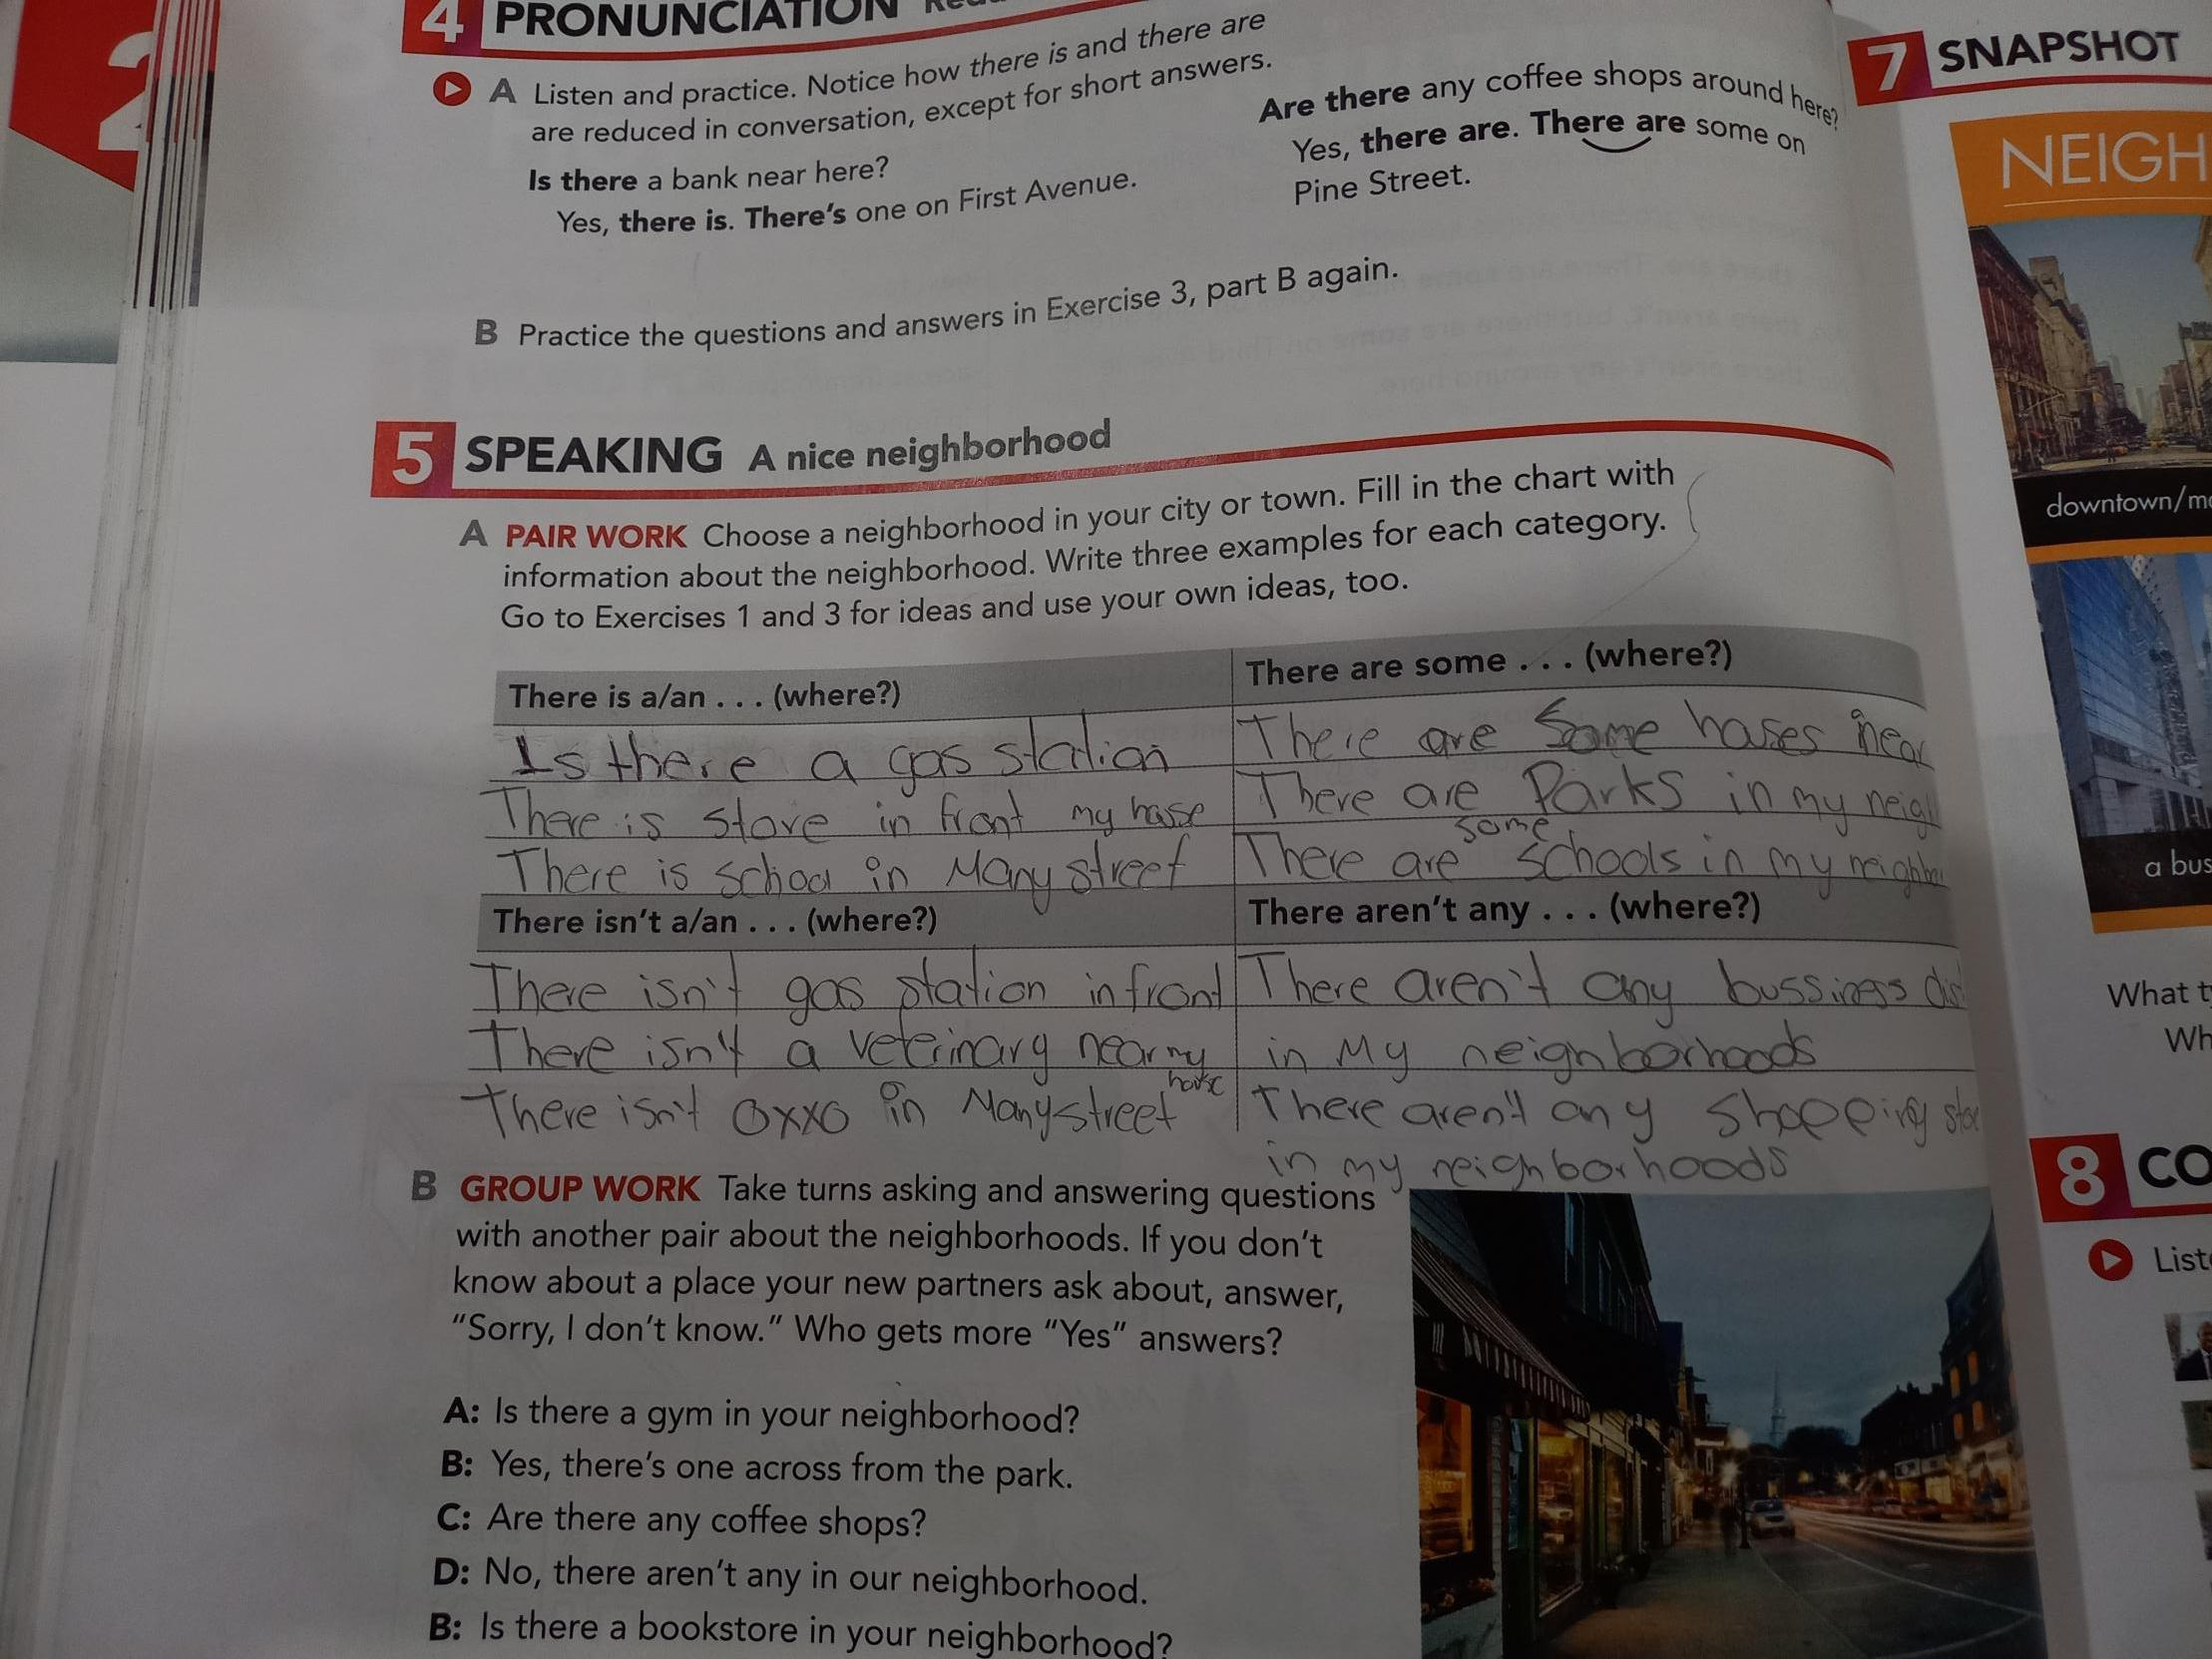 4 PRONUNCIATION
A Listen and practice. Notice how there is and there are
are reduced in conversation, except for short answers.
Is there a bank near here?
Yes, there is. There's one on First Avenue.
Are there any coffee shops around here?
Yes, there are. There are some on
Pine Street.
B Practice the questions and answers in Exercise 3, part B again.
5 SPEAKING A nice neighborhood
A PAIR WORK Choose a neighborhood in your city or town. Fill in the chart with
information about the neighborhood. Write three examples for each category.
Go to Exercises 1 and 3 for ideas and use your own ideas, too.
There is a/an . . . (where?)
Is there a gas station
There is store in front my house
There is school in Many street
There are some . . . (where?)
There are some houses near
There are Parks in my neig
some
There are schools in my neighbo
There isn't a/an . . . (where?)
There isn't gas station in front
There isn't a veterinary near my
house
There isn't OXXO in Many street
There aren't any . . . (where?)
There aren't any bussiness dis
in My neighborhoods
There aren't any shopping
in my neighborhoods
B GROUP WORK Take turns asking and answering questions
with another pair about the neighborhoods. If you don't
know about a place your new partners ask about, answer,
"Sorry, I don't know." Who gets more "Yes" answers?
A: Is there a gym in your neighborhood?
B: Yes, there's one across from the park.
C: Are there any coffee shops?
D: No, there aren't any in our neighborhood.
B: Is there a bookstore in your neighborhood?
7 SNAPSHOT
NEIGH
downtown/m
a bus
What t
Wh
8 CO
List
2